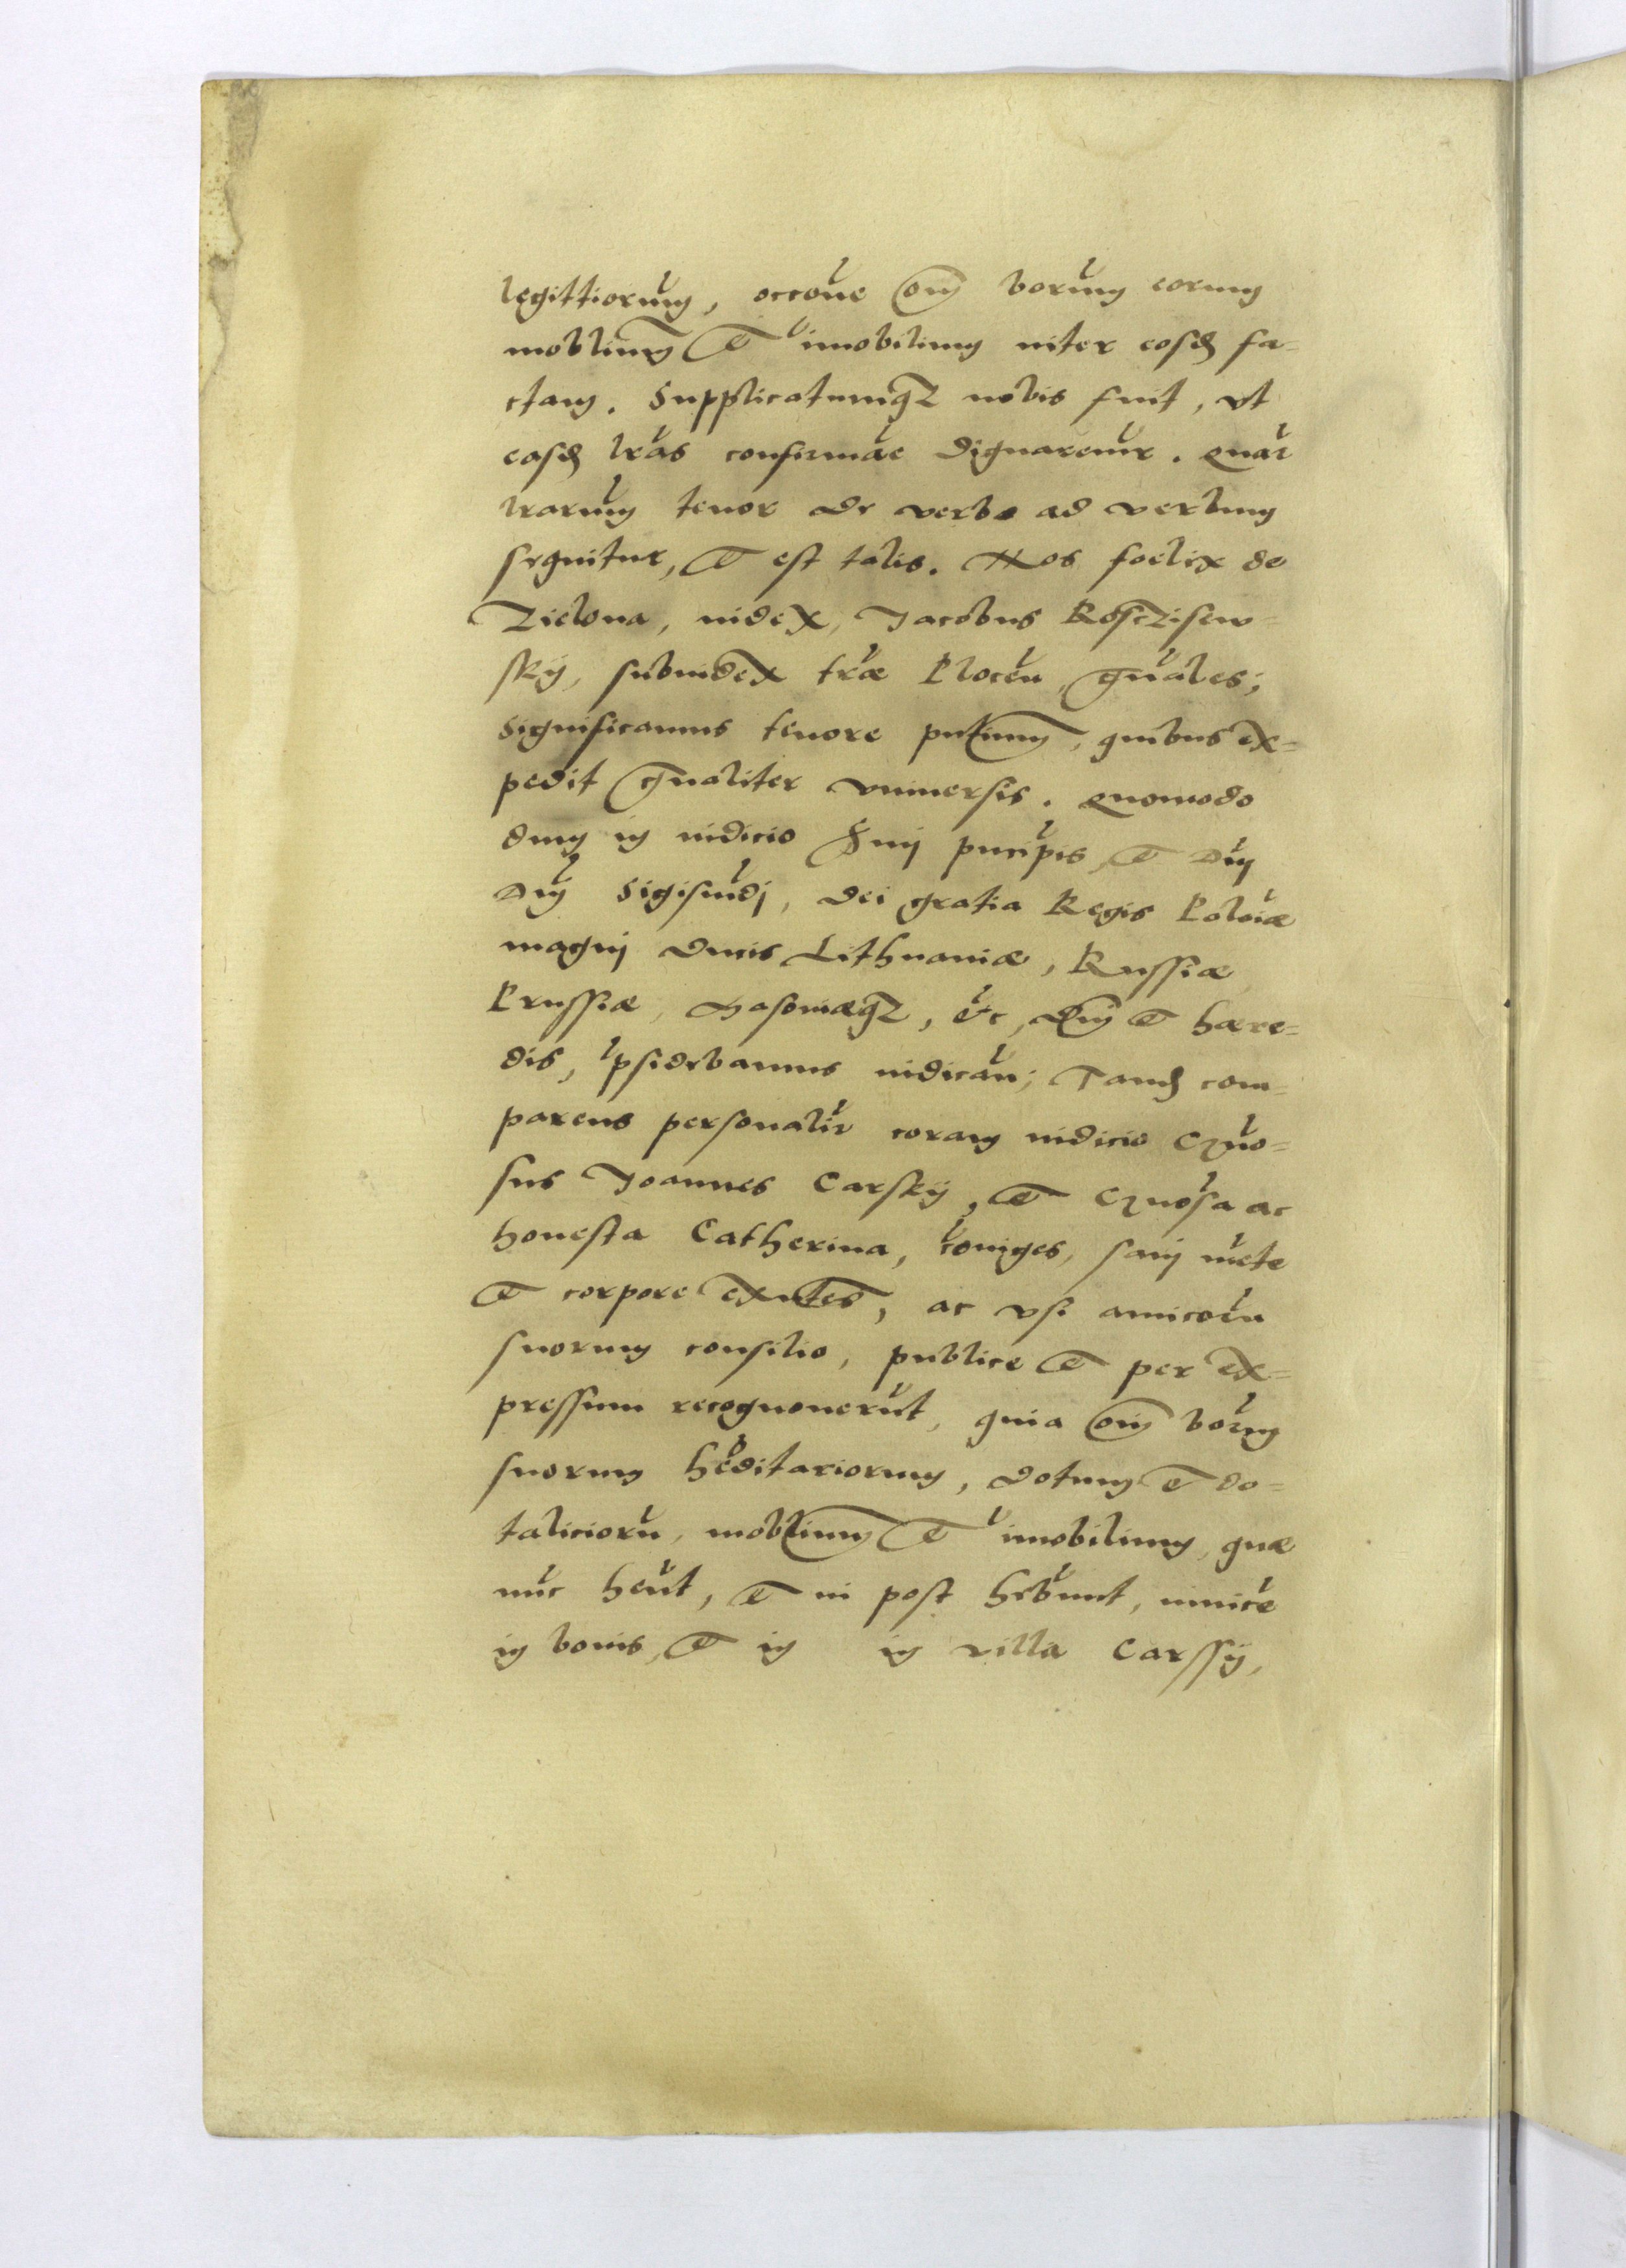 legittiorum, occōne om̄ borum eorum
moblium et im̄obilium inter eosdē fa-
ctam. Supplicatumq₃ nobis fuit, vt
easdē lr̄as confirmāe dignaremur. Quar̄
lrarum tenor de verbo ad verbum
sequitur, et est talis. Nos foelix de
Zielona, iudex, Jacobus Kosczisew-
skÿ, subiudex tr̄æ Plocēn, gn̄ales;
Significamus tenore pn̄tium, quibus ex-
pedit gn̄aliter vniuersis. Quomodo
dum in iudicio Srnj̄ pn̄cipis, et Dn̄j
Dn̄j Sigism̄dj, dei gratia Regis Polōiæ
magnj Ducis Lithuaniæ, Russiæ
Prussiæ, Masoviæq₃, etc, Dn̄j et hære-
dis, p̄sidebamus iudicān; Tandē com-
parens personalīr coram iudicio Gn̄o-
sus Joannes Carskÿ, et Gn̄osa ac
honesta Catherina, cōniges, sanj mēte
et corpore exn̄tes, ac vsi amicorū
suorum consilio, publice et per ex-
pressum recognouerūt, quia om̄ bōrum
suorum hēditariorum, dotum et do-
taliciorū, moblium et im̄obilium, quæ
nūc hēnt, et in post hēbunt, vnicē
in bonis, et in in villa Carssÿ,